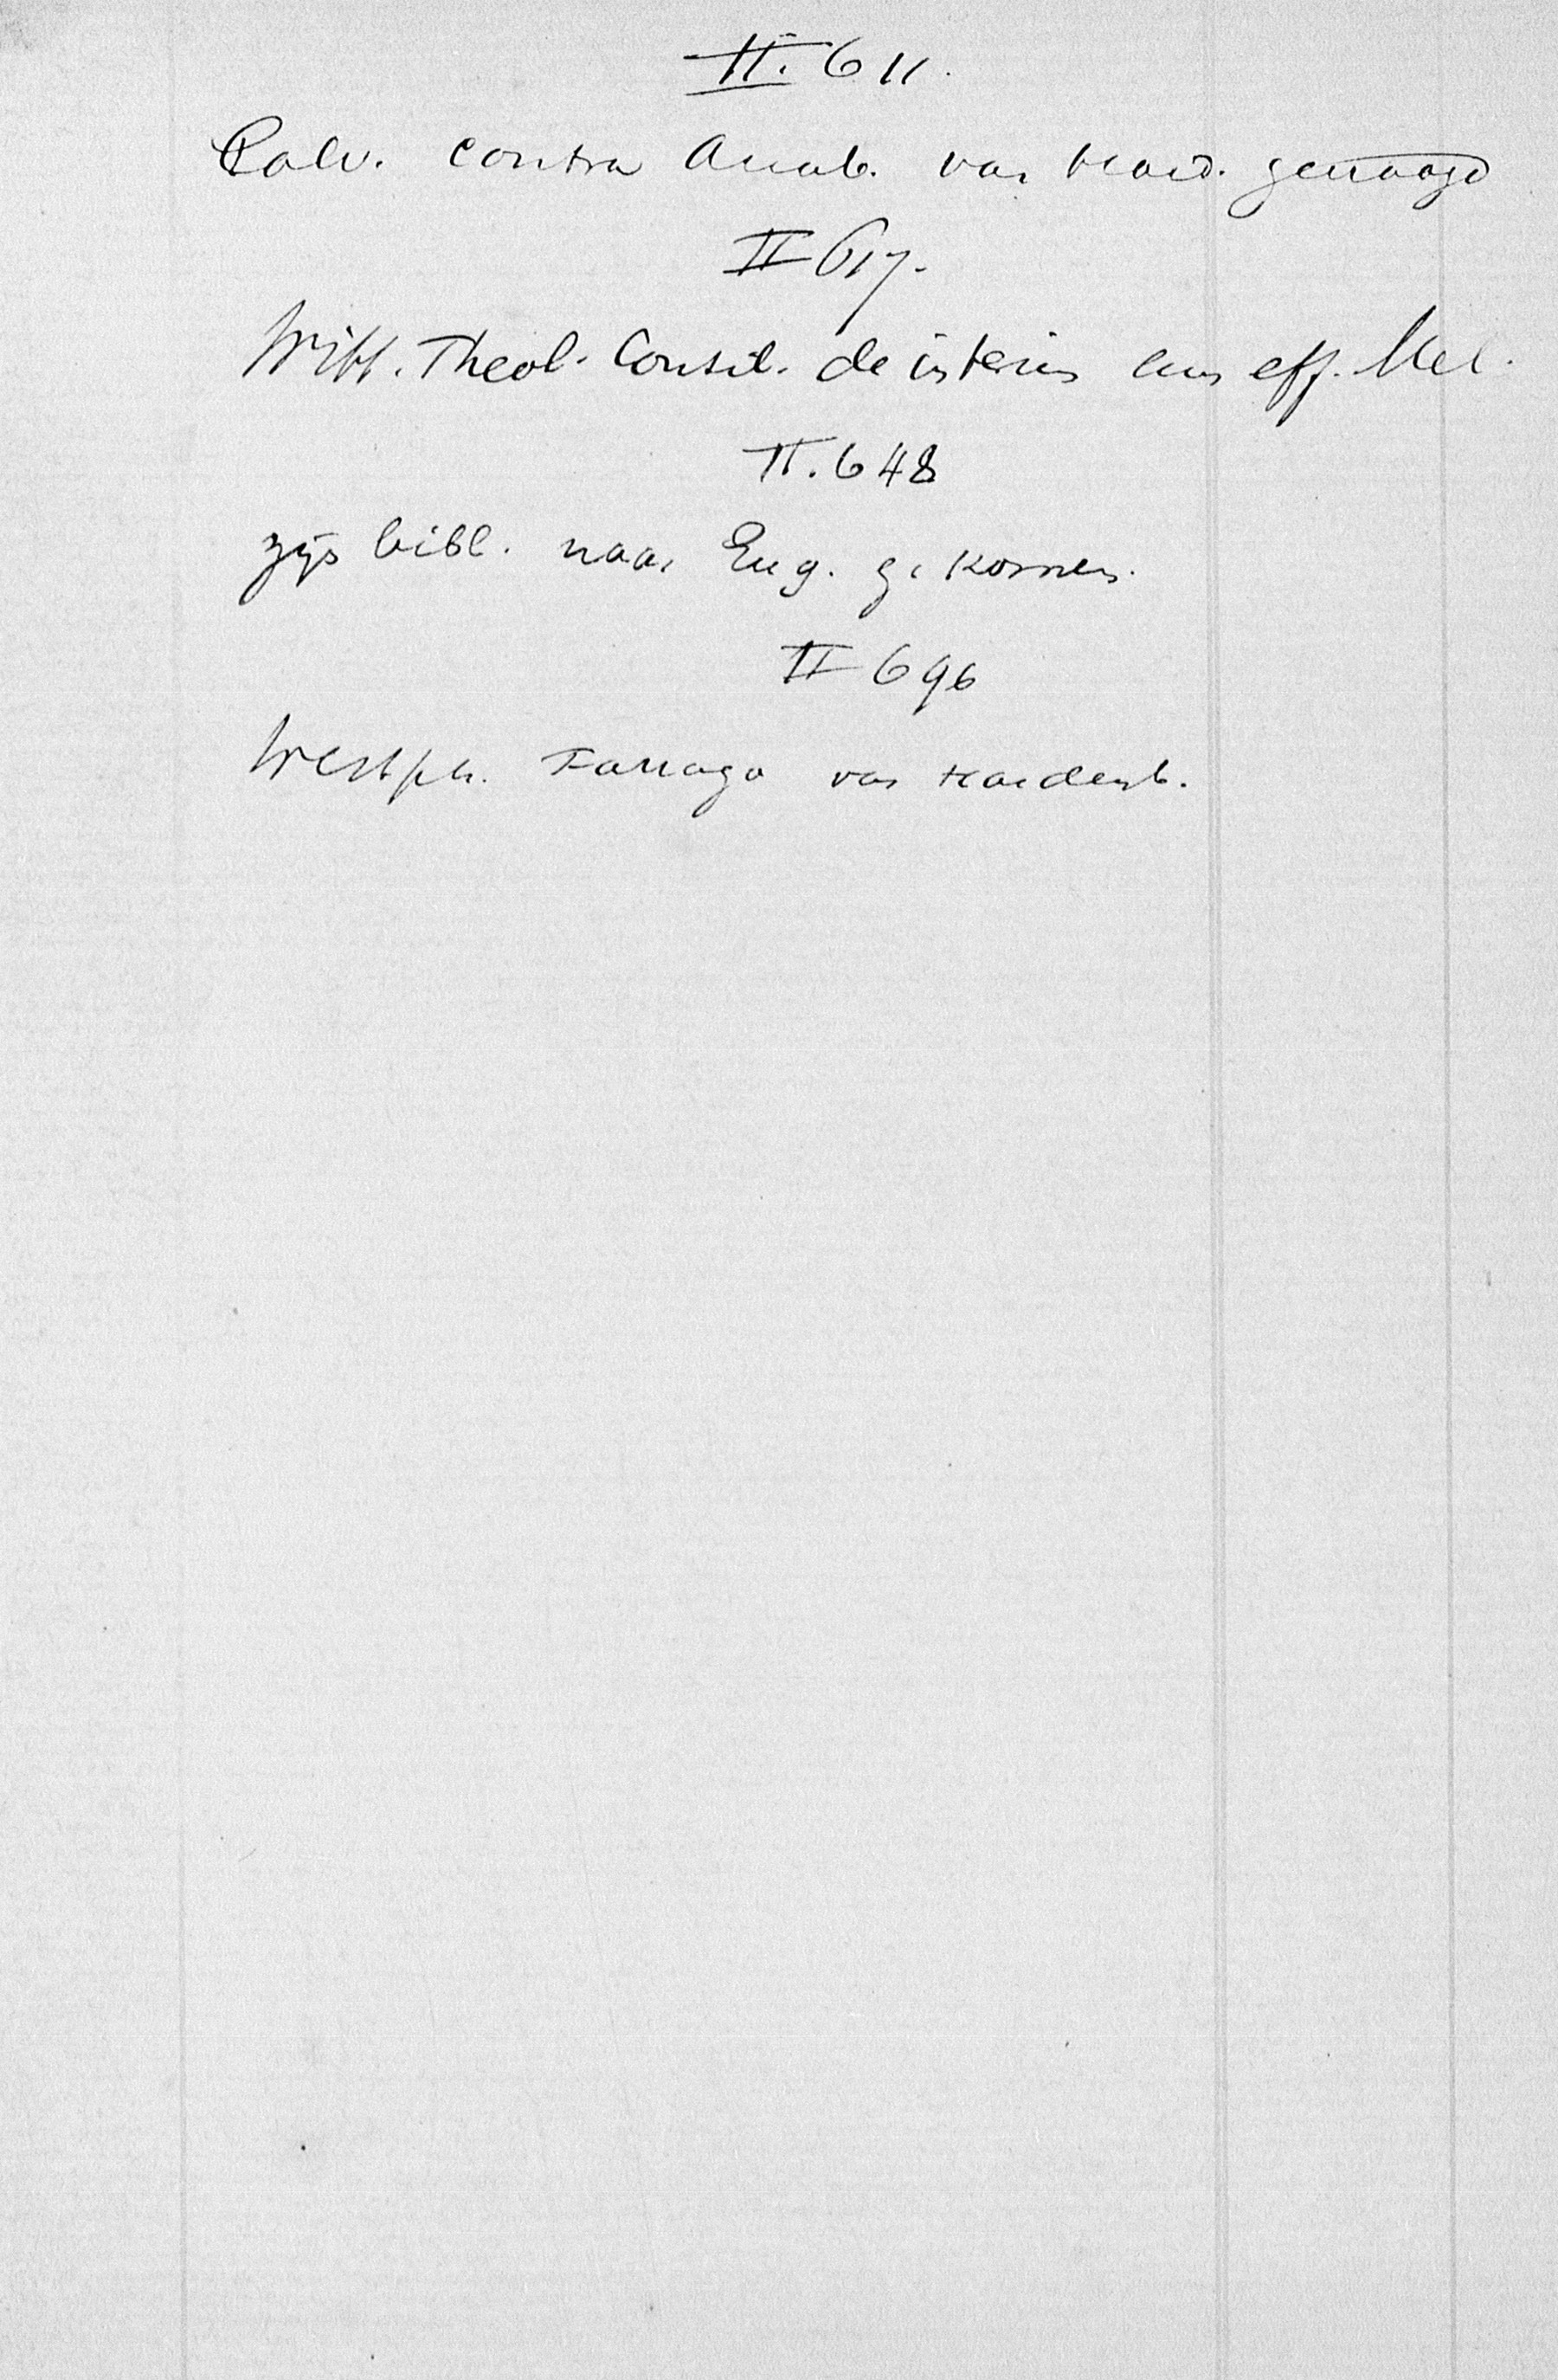 II. 611.
Calv. contra Anab. van Hard. gevraagd
II 617.
Witt. Theol. Consil. de interim cum eff. Mel.
II. 648
zijn bibl. naar Eng. gekomen.
II 696
Westph. Farrago van Hardenb.